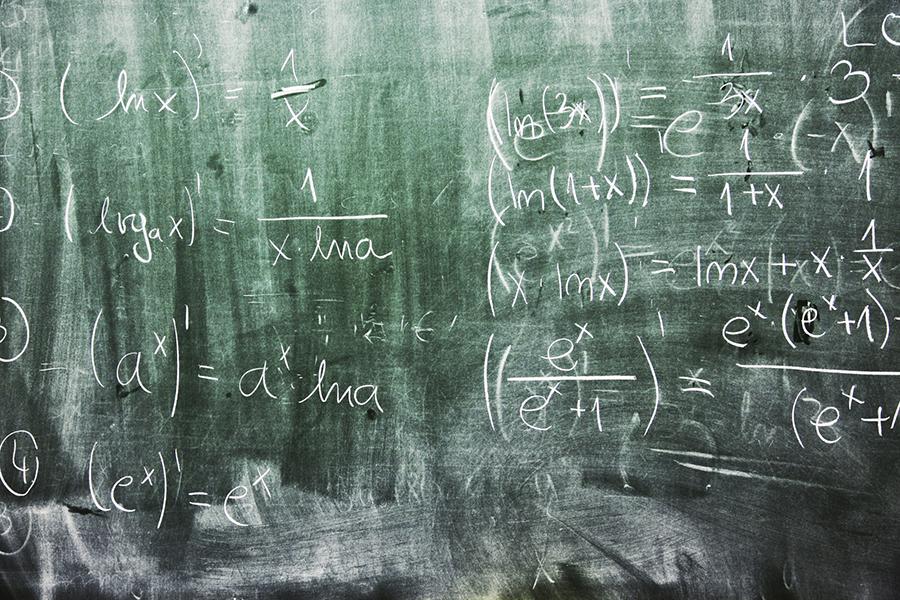 (ln x)' = 1/x
(log_a x)' = 1/(x · ln a)
= (a^x)' = a^x · ln a
④ (e^x)' = e^x
L
(ln(3x))' = 1/(3x) · 3
(ln(1+x))' = 1/(1+x) · 1
(x · ln x)' = ln x + x · 1/x
(e^x/(e^x+1))' = e^x · (e^x+1)
(e^x+1